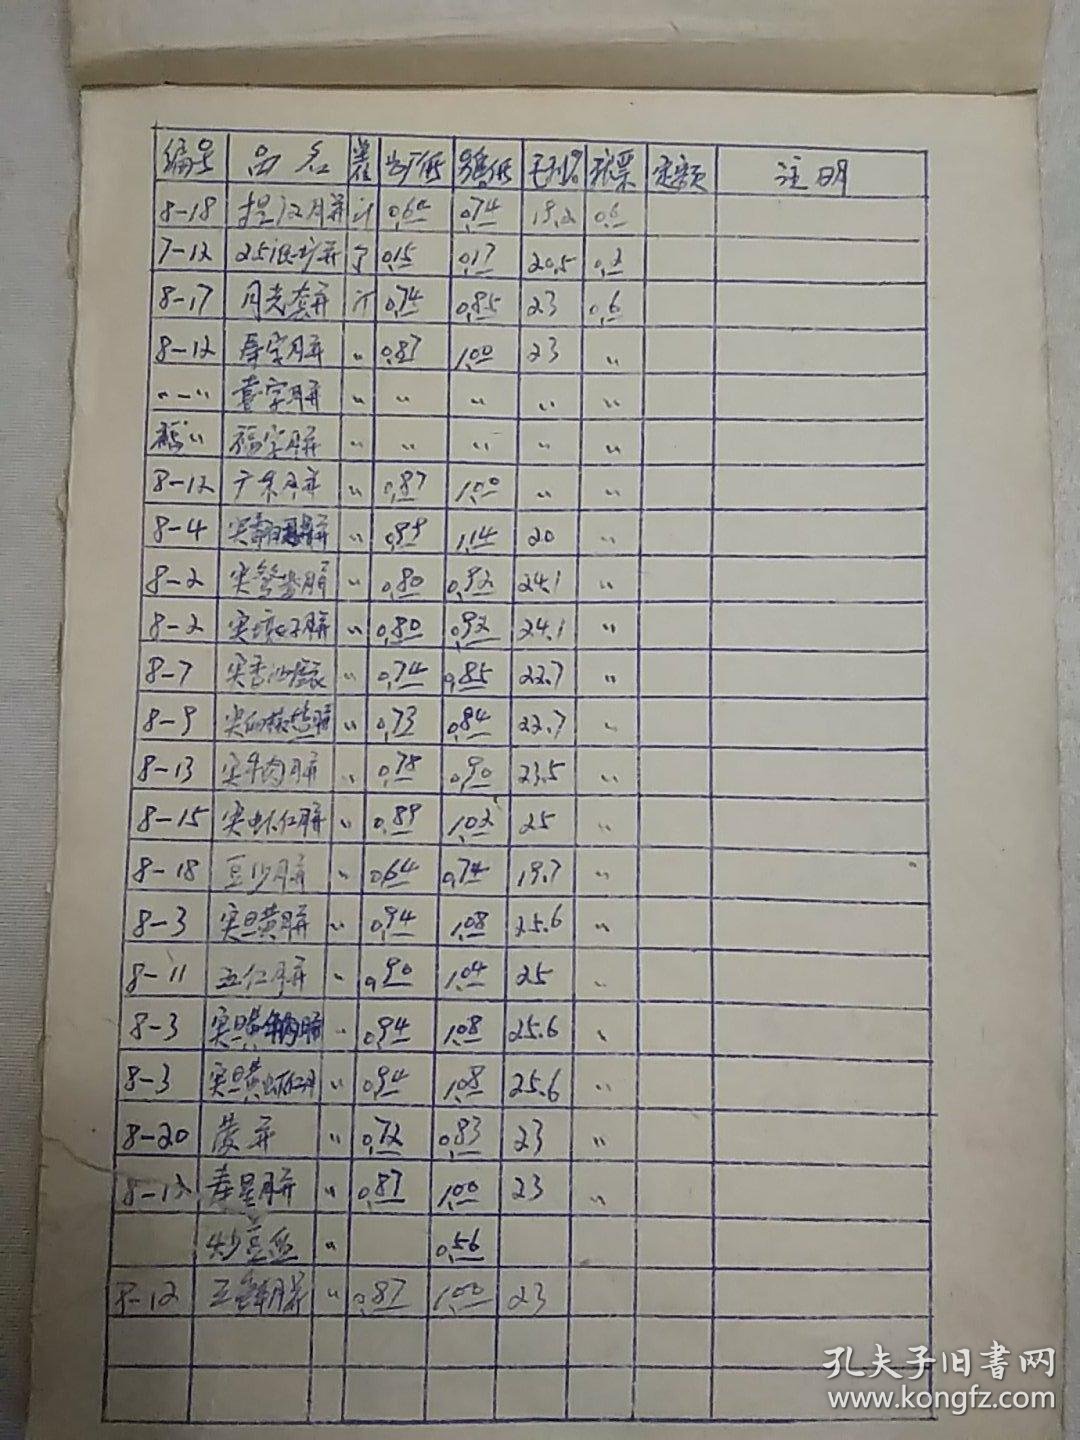 编号 品名 单位 出厂价 另售价 毛利% 粮票 定额 注明
8-18 提江月饼 斤 0.64 0.74 19.2 0.6
7-12 个 0.15 0.17 20.5 0.2
8-17 月光套饼 斤 0.74 0.85 23 0.6
8-12 寿字月饼 〃 0.87 1.00 23 〃
〃-〃 喜字月饼 〃 〃 〃 〃 〃
〃 福字月饼 〃 〃 〃 〃 〃
8-12 广东月饼 〃 0.87 1.00 〃 〃
8-4 〃 0.99 1.14 20 〃
8-2 〃 0.80 0.92 24.1 〃
8-2 〃 0.80 0.92 24.1 〃
8-7 〃 0.74 0.85 22.7 〃
8-9 〃 0.73 0.84 22.7 〃
8-13 〃 0.78 0.90 23.5 〃
8-15 实虾仁月饼 〃 0.89 1.02 25 〃
8-18 豆沙月饼 〃 0.64 0.74 19.7 〃
8-3 实旦黄月饼 〃 0.94 1.08 25.6 〃
8-11 五仁月饼 〃 0.90 1.04 25 〃
8-3 〃 0.94 1.08 25.6 〃
8-3 实旦黄虾仁月 〃 0.94 1.08 25.6 〃
8-20 〃 0.72 0.83 23 〃
8-12 寿星月饼 〃 0.87 1.00 23 〃
〃 0.56
8-12 三鲜月饼 〃 0.87 1.00 23
孔夫子旧書网
www.kongfz.com